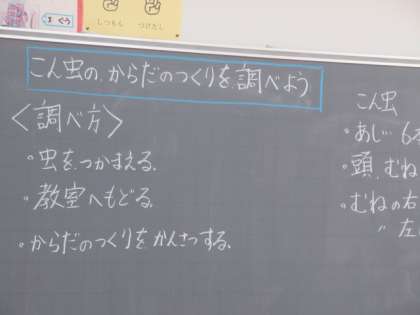 ぐう
しつもん
つけたし
こん虫の、からだのつくりを調べよう
〈調べ方〉
・虫をつかまえる。
・教室へもどる。
・からだのつくりをかんさつする。
こん虫
・あし… 6本
・頭、むね
・むねの右
〃 左